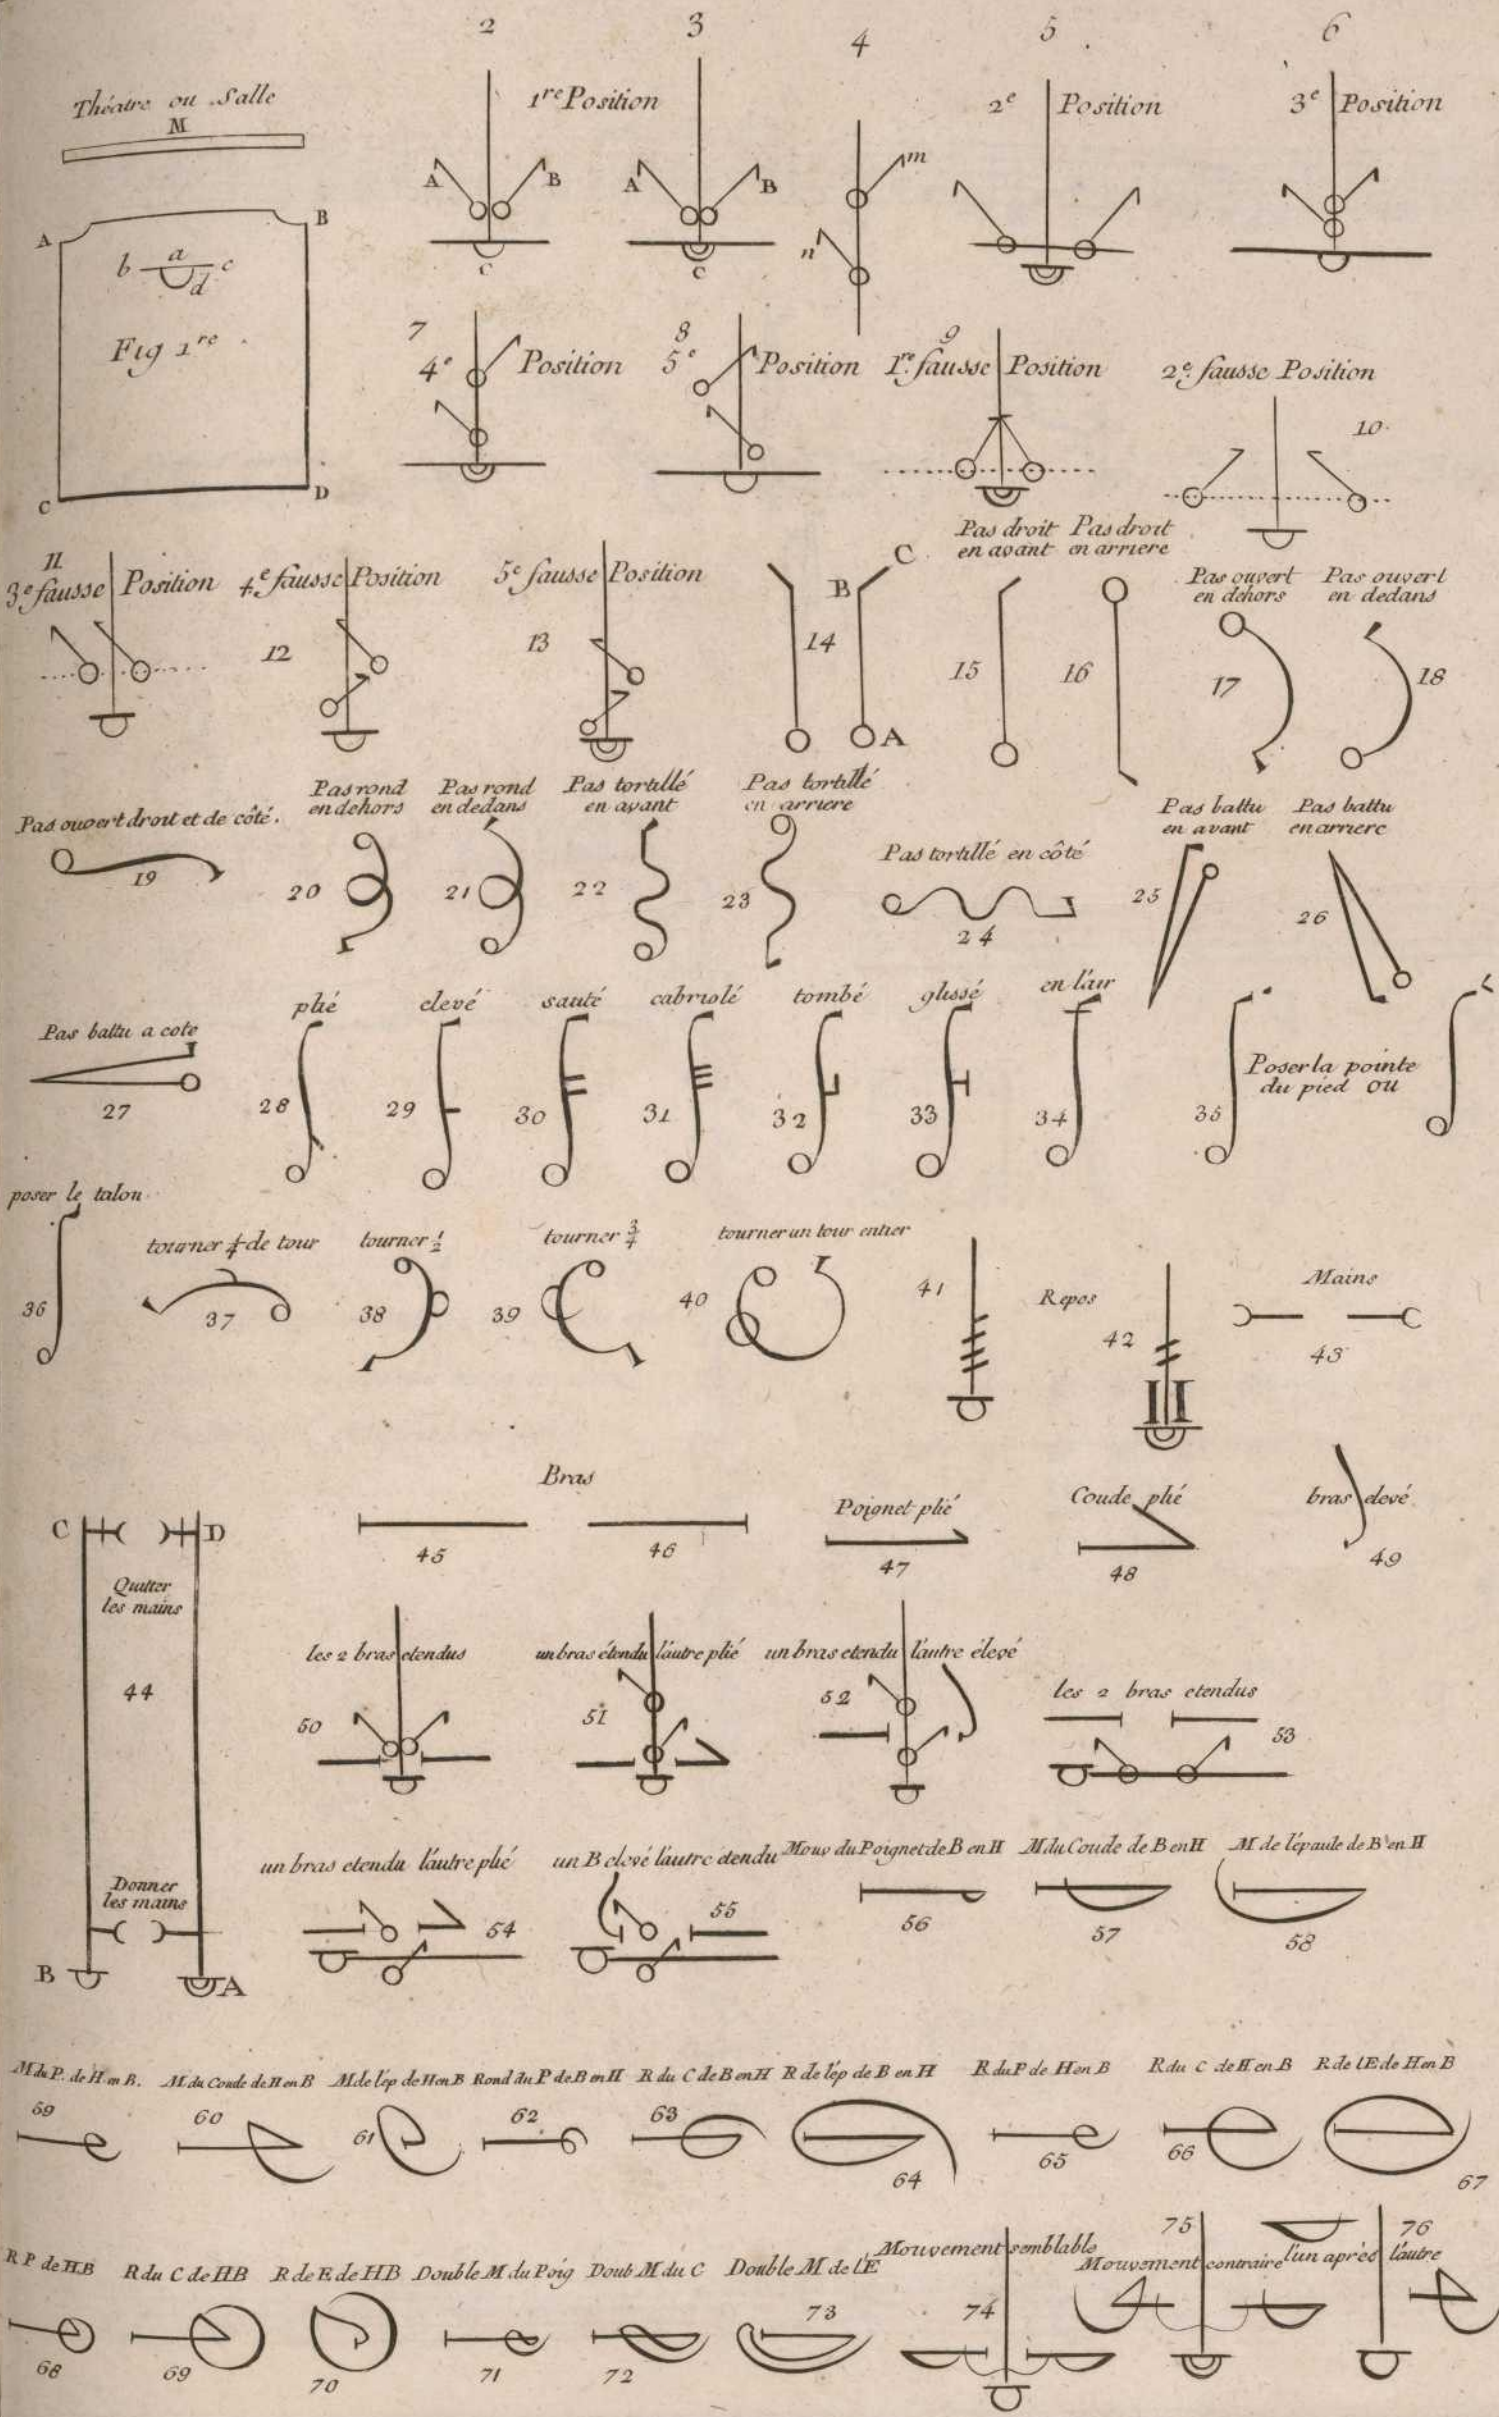 2
3
4
5
6
Théatre ou Salle
M
1re Position
2e Position
3e Position
A B C
A B C
m
n
A B
b a c
d
Fig 1re
C D
7
4e Position
8
5e Position
9
1re fausse Position
2e fausse Position
10
11
3e fausse Position
4e fausse Position
12
5e fausse Position
13
14
B C
A
Pas droit
en avant
15
Pas droit
en arriere
16
Pas ouvert
en dehors
17
Pas ouvert
en dedans
18
Pas ouvert droit et de côté.
19
Pas rond
en dehors
20
Pas rond
en dedans
21
Pas tortillé
en avant
22
Pas tortillé
en arriere
23
Pas tortillé en côté
24
Pas battu
en avant
25
Pas battu
en arriere
26
Pas battu a cote
27
plié
28
elevé
29
sauté
30
cabriolé
31
tombé
32
glissé
33
en l'air
34
35
Poser la pointe
du pied ou
poser le talon
36
tourner ¼ de tour
37
tourner ½
38
tourner ¾
39
tourner un tour entier
40
41
Repos
42
Mains
43
C D
Quitter
les mains
44
Donner
les mains
B A
Bras
45
46
Poignet plié
47
Coude plié
48
bras elevé
49
les 2 bras etendus
50
un bras étendu l'autre plié
51
un bras etendu l'autre élevé
52
les 2 bras etendus
53
un bras etendu l'autre plié
54
un B elevé l'autre étendu
55
Mouv du Poignet de B en H
56
M du Coude de B en H
57
M de l'épaule de B en H
58
M du P. de H en B.
59
M du Coude de H en B
60
M de l'ep de H en B
61
Rond du P de B en H
62
R du C de B en H
63
R de l'ép de B en H
64
R du P de H en B
65
R du C de H en B
66
R de l'E de H en B
67
R P de H B
68
R du C de H B
69
R de E de H B
70
Double M du Poig
71
Doub M du C
72
Double M de l'E
73
Mouvement semblable
74
Mouvement contraire
75
l'un après l'autre
76